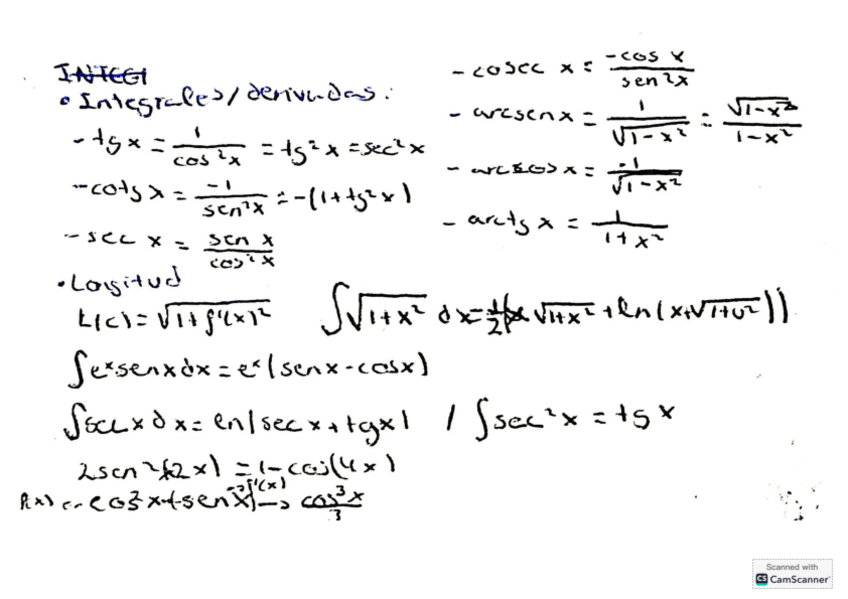 INTEGI
• Integrales/derivadas:
- tg x = 1/cos²x = tg²x = sec²x
- cotg x = -1/sen²x = -(1+tg²x)
- sec x = sen x/cos²x
- cosec x = -cos x/sen²x
- arcsen x = 1/√(1-x²) = √(1-x²)/(1-x²)
- arccos x = -1/√(1-x²)
- arctg x = 1/(1+x²)
• Longitud
L(c) = √(1+f'(x)²) ∫√(1+x²) dx = 1/2(x √(1+x²) + ln(x+√(1+υ²)))
∫eˣsenxdx = eˣ(senx-cosx)
∫secxdx = ln|secx+tgx| / ∫sec²x = tg x
2sen²(2x) = 1-cos(4x)
cos²x(-senx) → cos³x/3
Scanned with
CS CamScanner